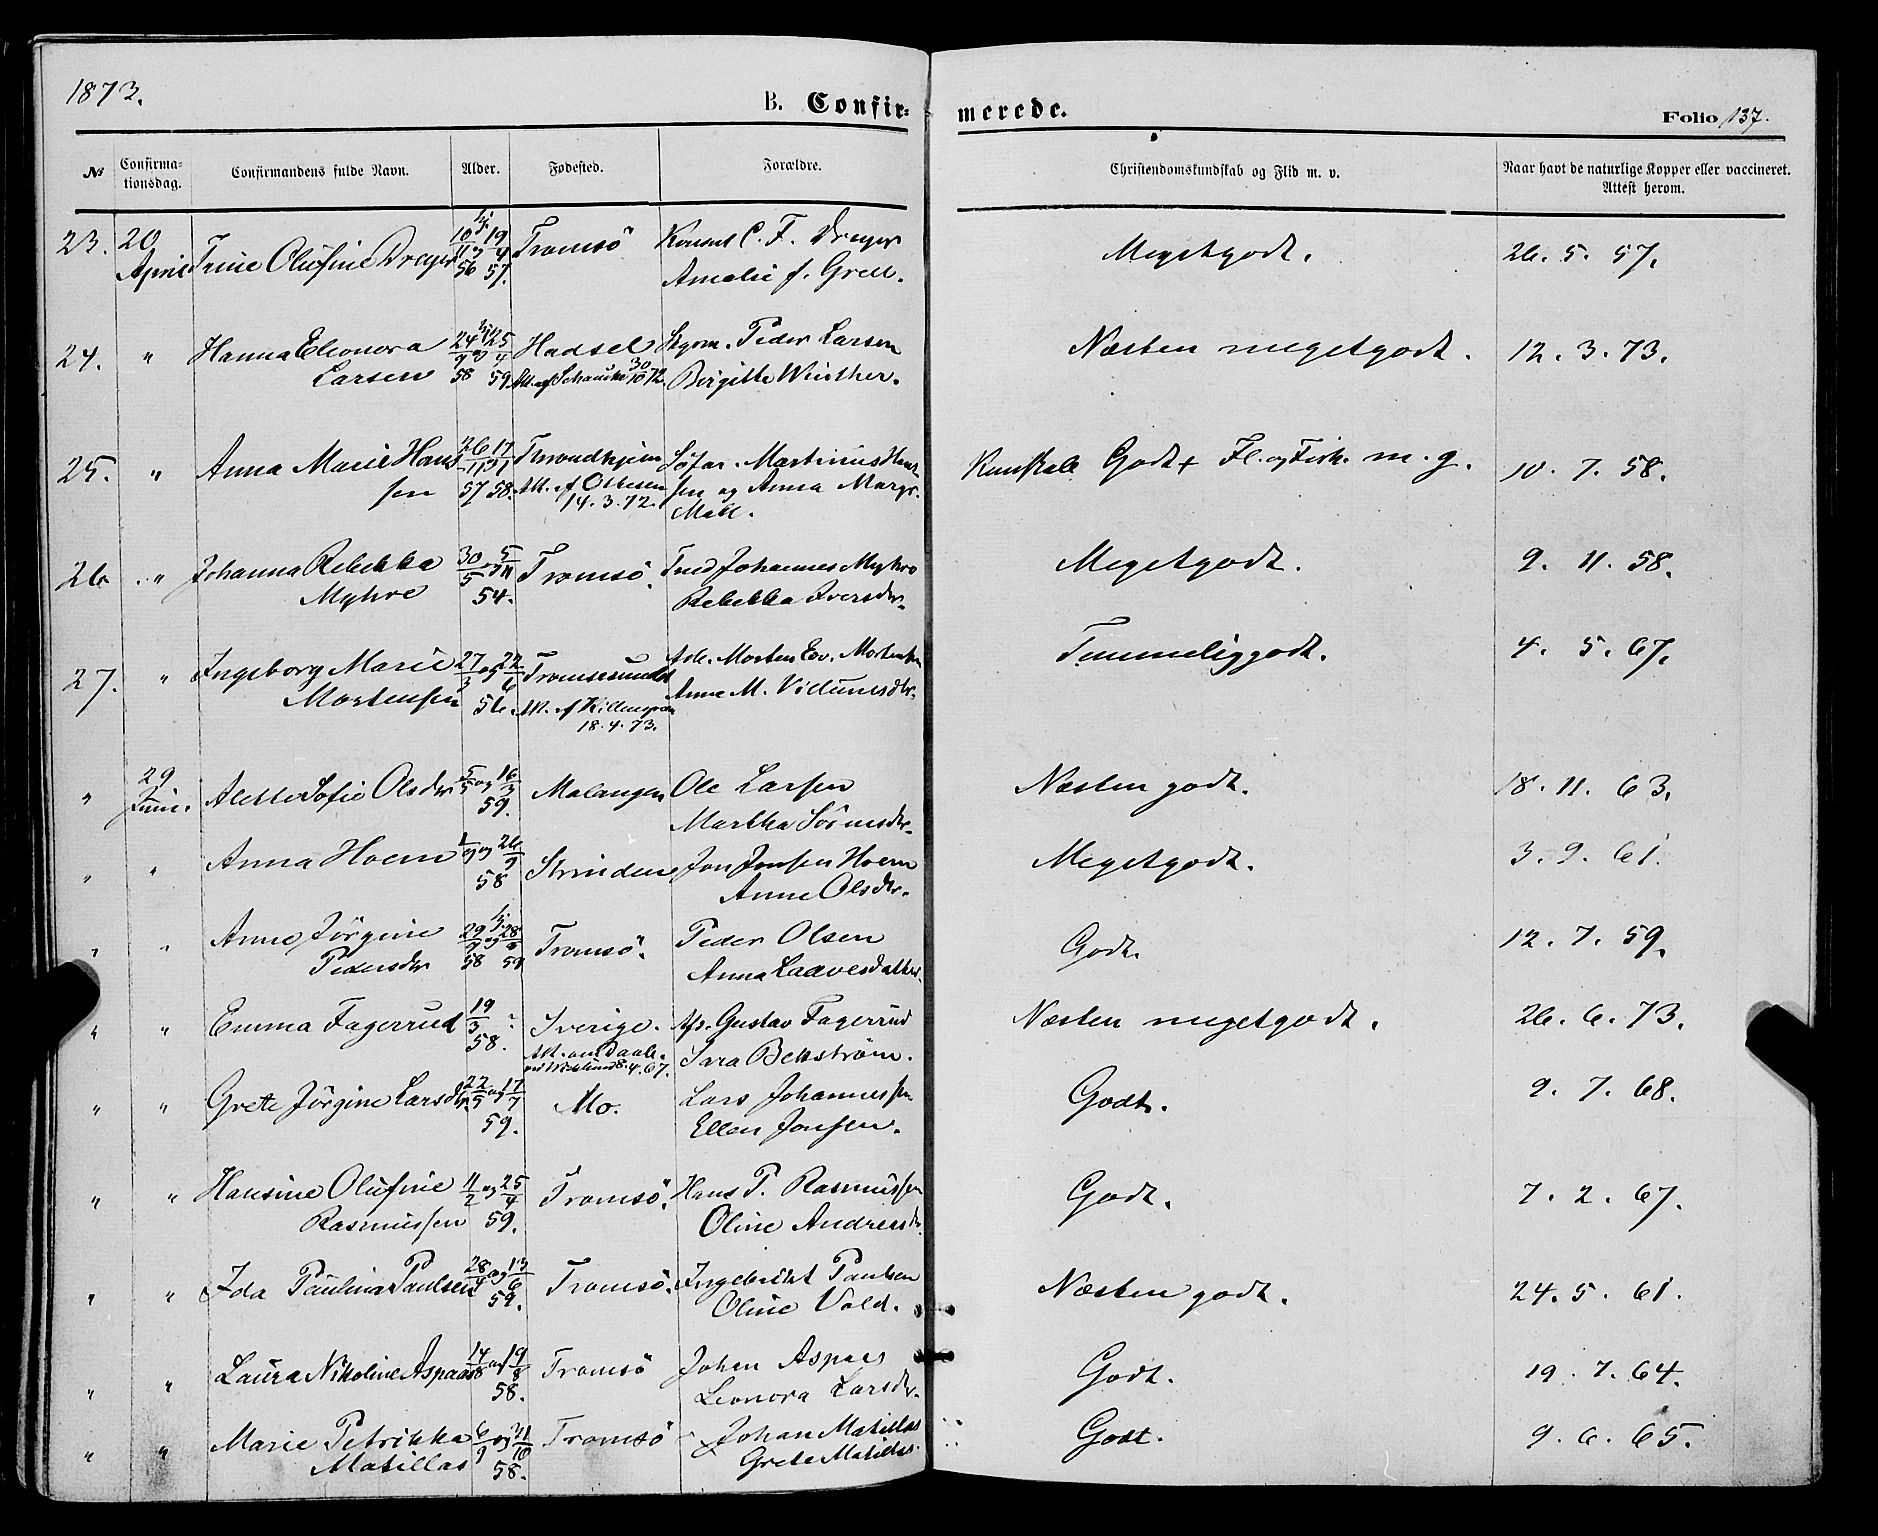 1873.
B. Confir-
merede.
Folio 137.
№
Confirma-
tionsdag.
Confirmandens fulde Navn.
Alder.
Fødested.
Forældre.
Christendomskundskab og Flid m. v.
Naar havt de naturlige Kopper eller vaccineret.
Attest herom.
23. 20 April Trine Olufine Dreyer 10/11 56 og 19/4 57. Tromsö Konsul C. F. Dreyer
Amalie f. Grell.
Megetgodt. 26. 5. 57.
24. " Hanna Eleonora 24/9 58 og 25/4 59 Hadsel Peder Larsen
Larsen 30/10 72. Birgitte Winther.
Næsten megetgodt. 12. 3. 73.
25. " Anna Marie Han 26/11 57 og 17/1 58. Throndhjem Söfar. Martinius Han
sen Att. af Ottesen sen og Anna Margr.
14. 3. 72. Mall.
Kundskab Godt + Fl. og Fisk. m. g. 10. 7. 58.
26 " Johanna Rebekka 30/5 og 5/11 Tromsö. Johannes Myhre
Myhre 54. Rebekka Iversdr.
Megetgodt. 9. 11. 58.
27. " Ingeborg Marie 27/3 og 22/6 Tromsesundet Arb. Morten Ev. Mortensen
Mortensen 56. Anne M. Vidumsdtr.
18. 4. 73.
Temmeliggodt. 4. 5. 67.
" 29 Juni. Alette Sofie Olsdr 5/5 og 16/5 Malangen Ole Larsen
59. Martha Sörensdr.
Næsten godt. 18. 11. 63.
" " Anna Hoem 1/9 og 26/9 Strinden Jon Jonsen Hoem
58 Anne Olsdtr.
Megetgodt. 3. 9. 61.
" " Anne Jörgine 29/9 og 28 Tromsö. Peder Olsen
Pedersdr 58 59 Anna Laavesdatter
Godt. 12. 7. 59.
" " Emma Fagerrud 19/3 Sverige. Gustav Fagerrud
58. 8. 4. 67. Sara Bekström.
Næsten megetgodt. 26. 6. 73.
" " Grete Jörgine Larsdtr. 22/5 og 17/7 Mo. Lars Johannessen
59. Ellen Jonsen.
Godt. 9. 7. 68.
" " Hansine Olufine 11/2 og 25/4 Tromsö. Hans P. Rasmussen
Rasmussen 59. Oline Andreasdr.
Godt. 7. 2. 67.
" " Ida Paulina Paulsen 28/4 og 13/6 Tromsö. Ingebrikt Paulsen
59. Oline Vold.
Næsten godt. 24. 5. 61.
" " Laura Nikoline Aspaas 14/8 og 19/8 Tromsö Johan Aspaas
58. Leonora Larsdr.
Godt. 19. 7. 64.
" " Marie Petrikka 6/9 og 31/10 Tromsö Johan Matillas
Matillas 58. Grete Matillas.
Godt. 9. 6. 65.